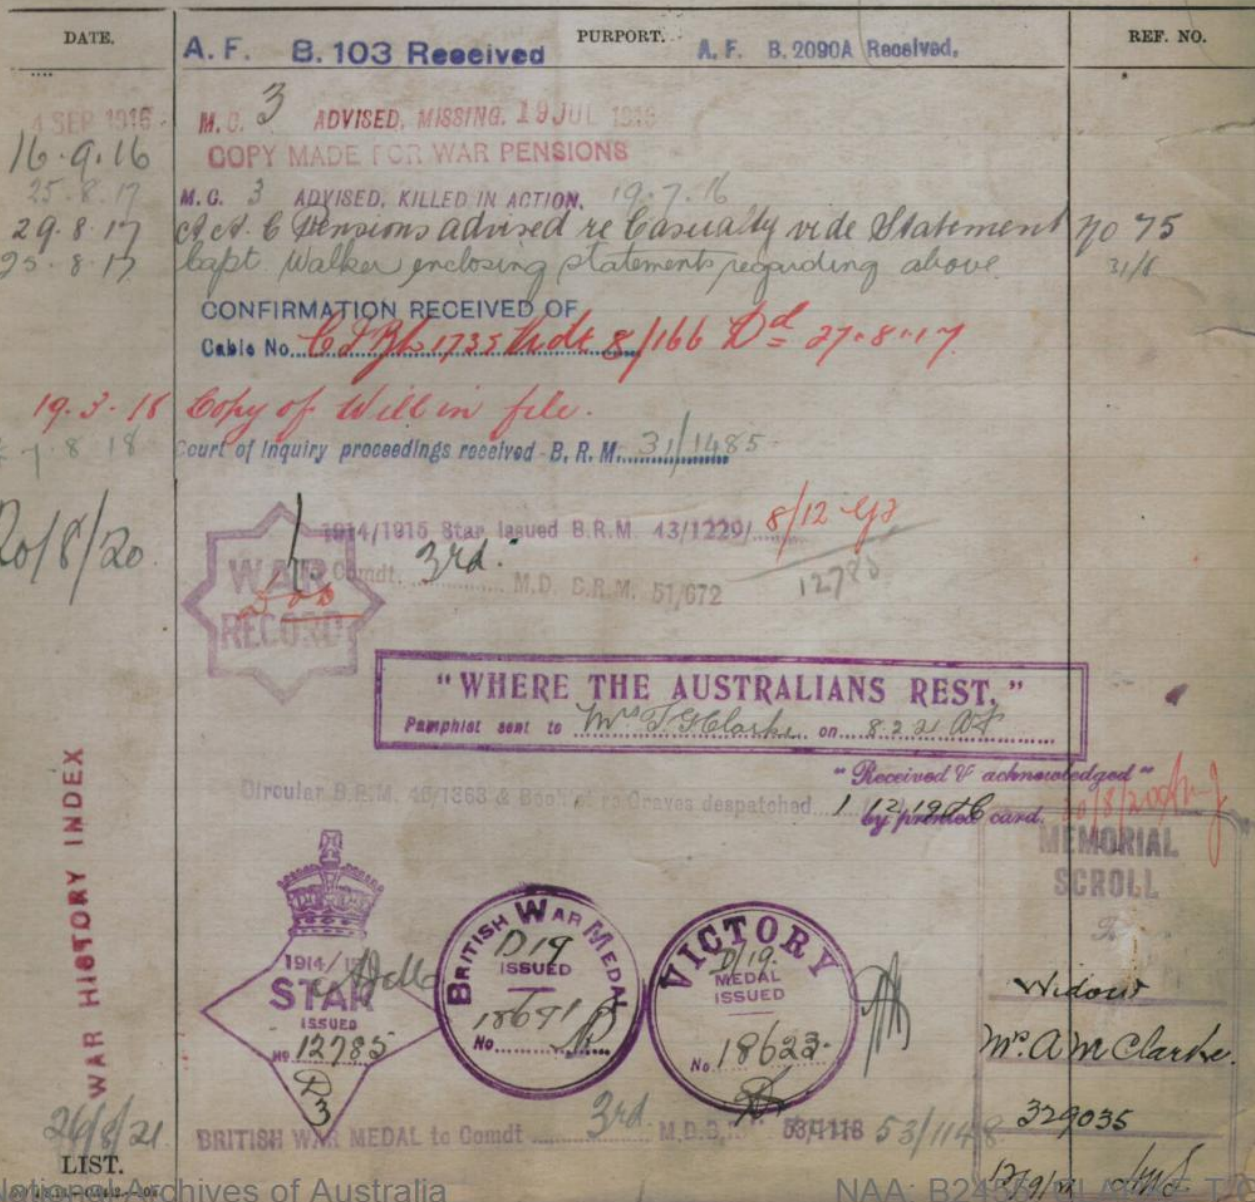 DATE. PURPORT. REF. NO.
A. F. B. 103 Received A. F. B. 2090A Received.
4 SEP 1916 M. C. 3 ADVISED, MISSING. 19 JUL 1916
16.9.16 COPY MADE FOR WAR PENSIONS
25.8.17 M. C. 3 ADVISED, KILLED IN ACTION. 19.7.16
29.8.17 Pensions advised re Casualty vide Statement No 75
25.8.17 Capt. Walker enclosing statements regarding above. 31/8
CONFIRMATION RECEIVED OF
Cable No. 8/166 Dd 27.8.17
19.3.18 Copy of Will in file.
7.8.18 Court of Inquiry proceedings received - B. R. M. 31/1485
1914/1915 Star Issued B.R.M. 43/1229/ 8/12
20/8/20 Comdt. 3rd. M.D. B.R.M. 51/672 12785
WAR
RECORD
"WHERE THE AUSTRALIANS REST."
Pamphlet sent to Mrs Clarke on 8.2.21
"Received & acknowledged"
by printed card.
Circular B.R.M. 46/1363 & Booklet re Graves despatched 1/12/19
WAR HISTORY INDEX
MEMORIAL
SCROLL
1914/15
STAR
ISSUED
No 12785
D
3
BRITISH WAR MEDAL
D19
ISSUED
No. 18691
VICTORY
D/19.
MEDAL
ISSUED
No. 18623
Widow
Mrs. A M Clarke.
329035
26/8/21 BRITISH WAR MEDAL to Comdt 3rd. M.D. 53/1148
LIST.
National Archives of Australia
NAA: